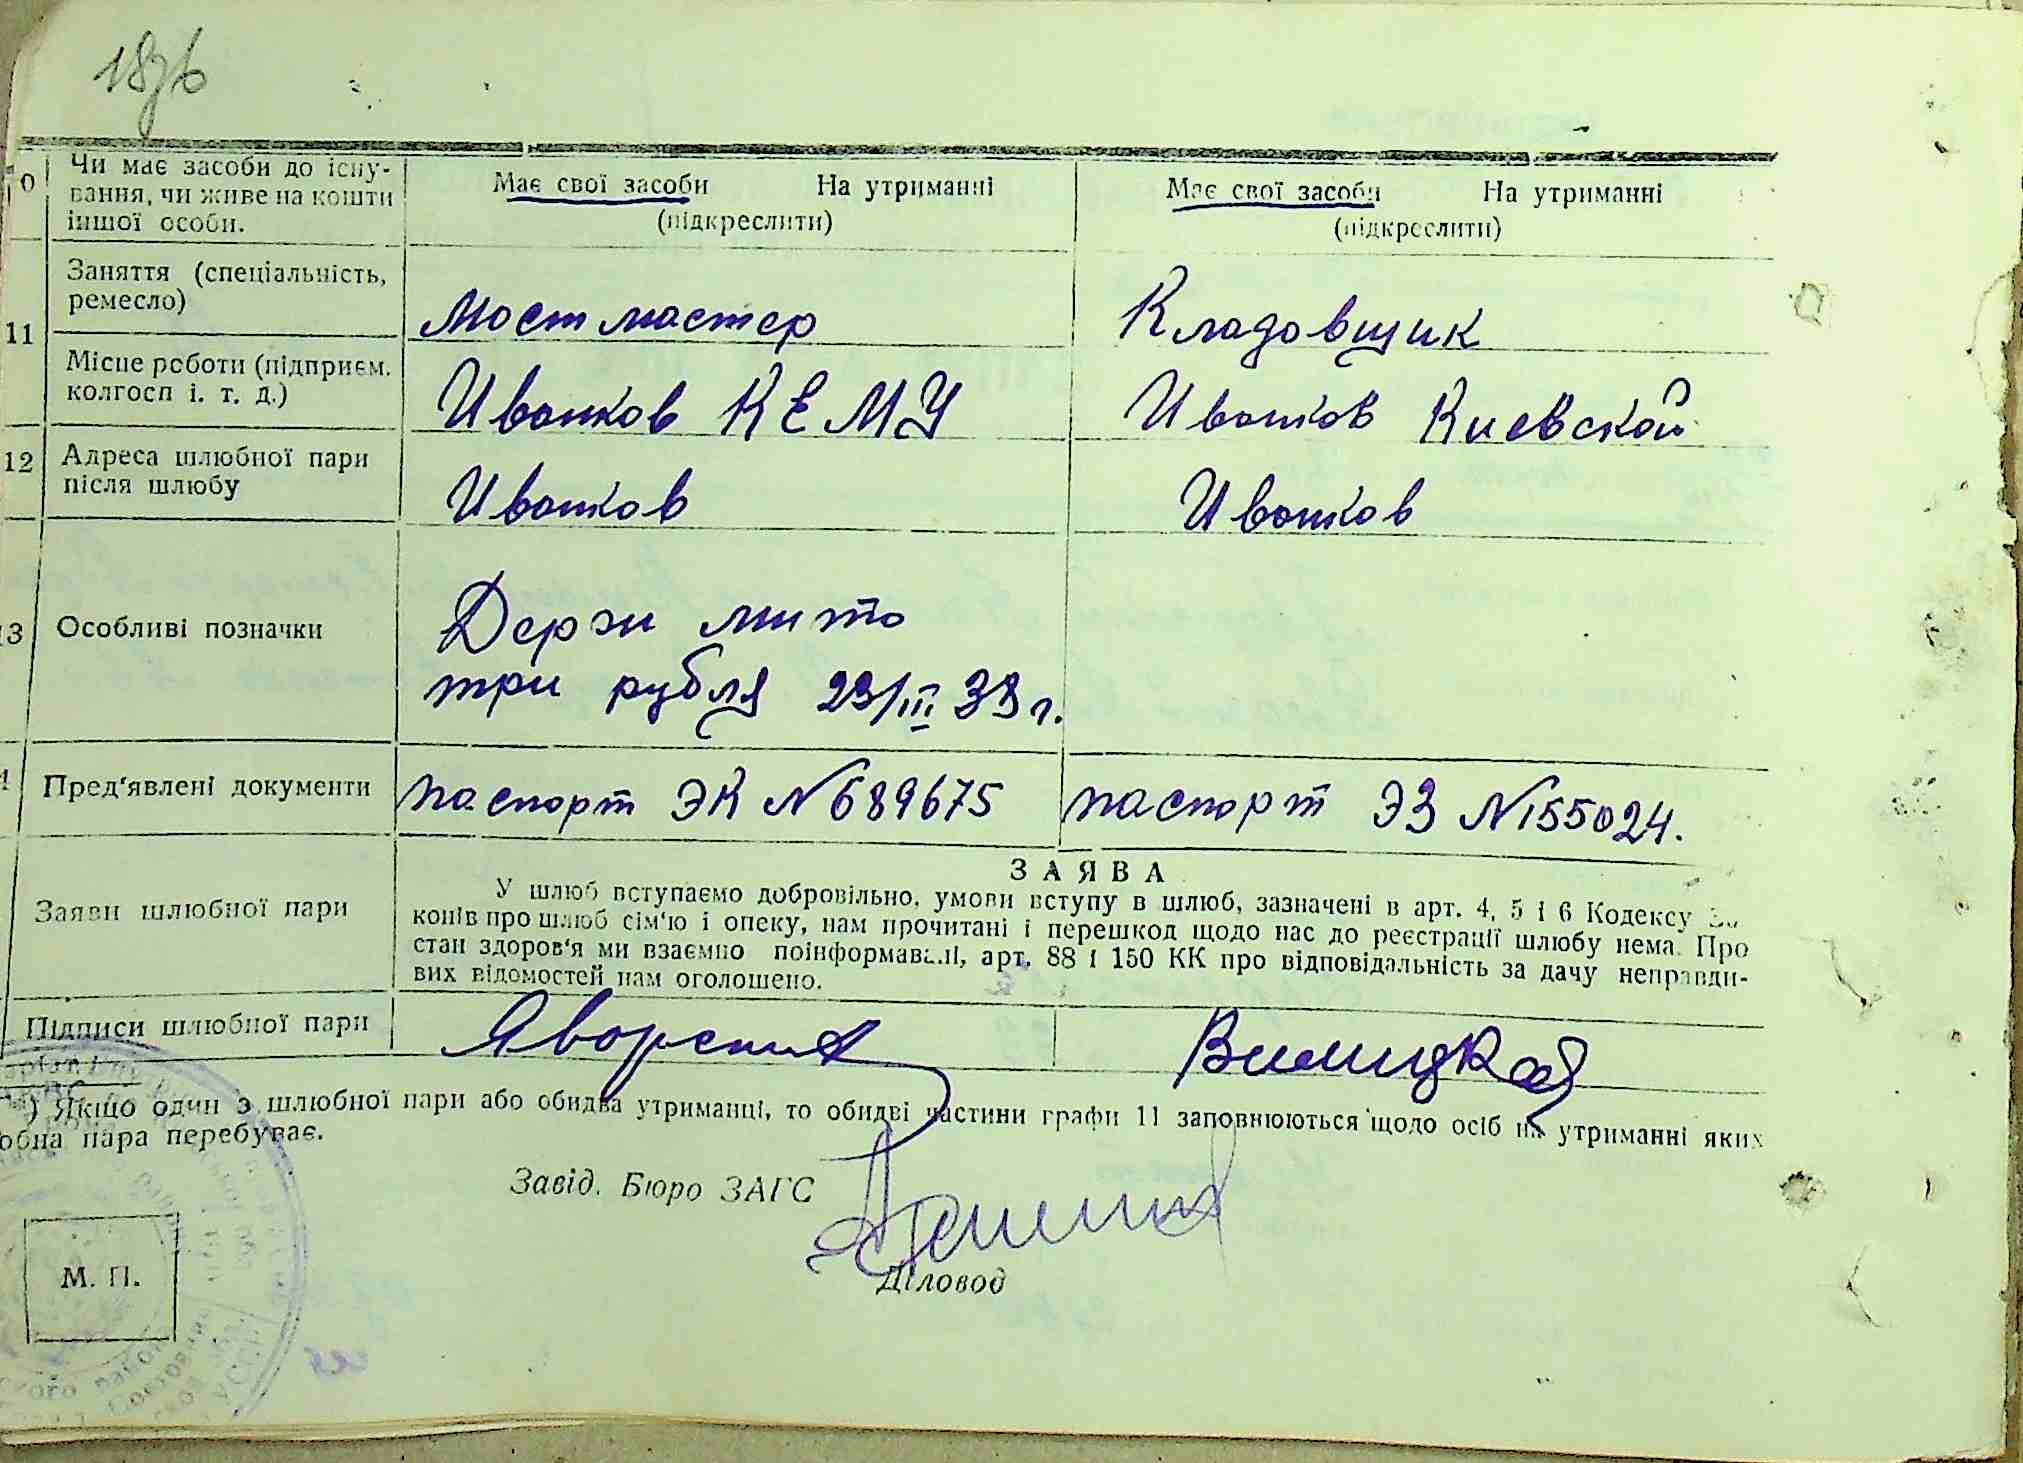 10 Чи має засоби до існу-
вання, чи живе на кошти
іншої особи.
Має свої засоби На утриманні
(підкреслити)
Має свої засоби На утриманні
(підкреслити)
11 Заняття (спеціальність,
ремесло)
Мостмастер
Кладовщик
Місце роботи (підприєм.
колгосп і. т. д.)
Иванков КЕМУ
Иванков Киевской
12 Адреса шлюбної пари
після шлюбу
Иванков
Иванков
13 Особливі позначки
Держ мито
три рубля 23/III 39 г.
Пред'явлені документи
паспорт ЭК № 689675
паспорт ЭЗ № 155024.
Заяви шлюбної пари
ЗАЯВА
У шлюб вступаємо добровільно, умови вступу в шлюб, зазначені в арт. 4, 5 і 6 Кодексу
конів про шлюб сім'ю і опеку, нам прочитані і перешкод щодо нас до реєстрації шлюбу нема. Про
стан здоров'я ми взаємно поінформавалі, арт. 88 і 150 КК про відповідальність за дачу неправди-
вих відомостей нам оголошено.
Підписи шлюбної пари
) Якщо один з шлюбної пари або обидва утриманці, то обидві частини графи 11 заповнюються щодо осіб на утриманні яких
обна пара перебуває.
Завід. Бюро ЗАГС
Діловод
М. П.